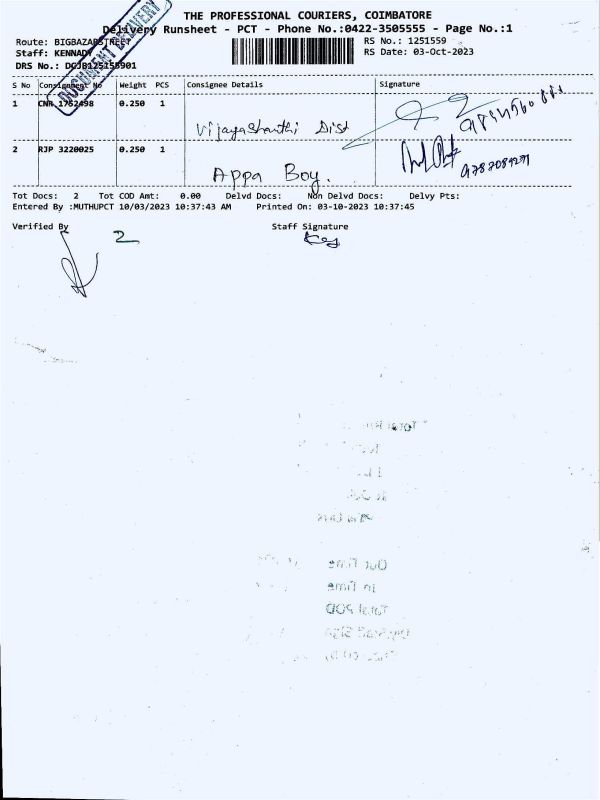 THE PROFESSIONAL COURIERS, COIMBATORE
Delivery Runsheet - PCT - Phone No.:0422-3505555 - Page No.:1
Route: BIGBAZARSTREET
Staff: KENNADY
DRS No.:
RS No.: 1251559
RS Date: 03-Oct-2023
DOCUMENT DELIVERY
S No Consignment No Weight PCS Consignee Details Signature
1 CNR 1752498 0.250 1
Vijayashanthi Dist
2 RJP 3220025 0.250 1
Appa Boy.
Tot Docs: 2 Tot COD Amt: 0.00 Delvd Docs: Non Delvd Docs: Delvy Pts:
Entered By :MUTHUPCT 10/03/2023 10:37:43 AM Printed On: 03-10-2023 10:37:45
Verified By Staff Signature
2
Out Time
In Time
Total POD